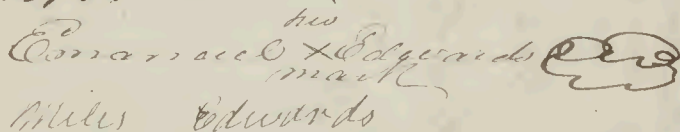 his
Emanuel X Edwards
mark
Miles Edwards